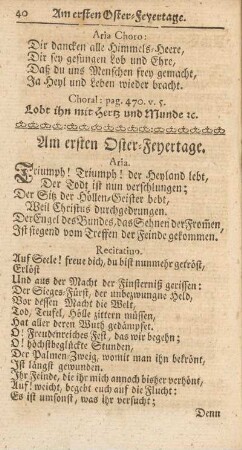 40 Am ersten Oster-Feyertage.
Aria Choro:
Dir dancken alle Himmels-Heere,
Dir sey gesungen Lob und Ehre,
Daß du uns Menschen frey gemacht,
Ja Heyl und Leben wieder bracht.
Choral: pag. 470. v. 5.
Lobt ihn mit Hertz und Munde ꝛc.
Am ersten Oster-Feyertage.
Aria.
Triumph! Triumph! der Heyland lebt,
Der Todt ist nun verschlungen;
Der Sitz der Höllen-Geister bebt,
Weil Christus durchgedrungen.
Der Engel des Bundes, das Sehnen der From̃en,
Ist siegend vom Treffen der Feinde gekommen.
Recitativo.
Auf Seele! freue dich, du bist nunmehr getröst,
Erlöst
Und aus der Macht der Finsterniß gerissen:
Der Sieges-Fürst, der unbezwungne Held,
Vor dessen Macht die Welt,
Tod, Teufel, Hölle zittern müssen,
Hat aller deren Wuth gedämpfet.
O! Freudenreiches Fest, das wir begehn;
O! höchstbeglückte Stunden,
Der Palmen-Zweig, womit man ihn bekrönt,
Ist längst gewunden.
Ihr Feinde, die ihr mich annoch bisher verhönt,
Auf! weicht, begebt euch auf die Flucht:
Es ist umsonst, was ihr versucht;
Denn